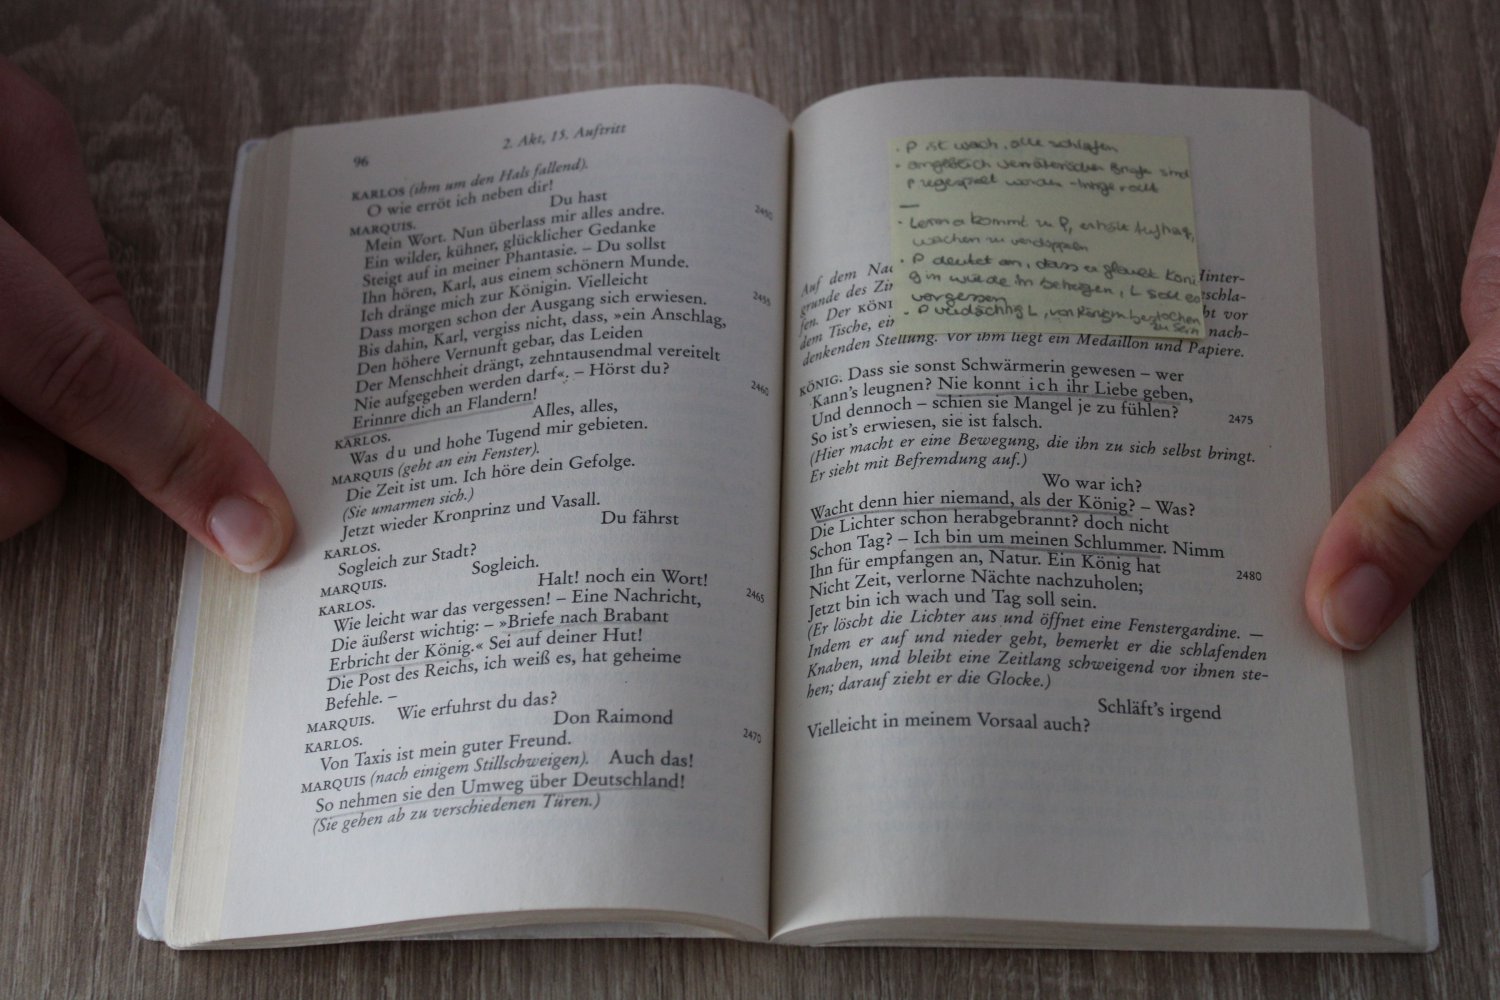 96
2. Akt, 15. Auftritt
KARLOS (ihm um den Hals fallend).
O wie erröt ich neben dir!
MARQUIS. Du hast
Mein Wort. Nun überlass mir alles andre. 2450
Ein wilder, kühner, glücklicher Gedanke
Steigt auf in meiner Phantasie. – Du sollst
Ihn hören, Karl, aus einem schönern Munde.
Ich dränge mich zur Königin. Vielleicht
Dass morgen schon der Ausgang sich erwiesen. 2455
Bis dahin, Karl, vergiss nicht, dass, »ein Anschlag,
Den höhere Vernunft gebar, das Leiden
Der Menschheit drängt, zehntausendmal vereitelt
Nie aufgegeben werden darf«. – Hörst du?
Erinnre dich an Flandern! 2460
KARLOS. Alles, alles,
Was du und hohe Tugend mir gebieten.
MARQUIS (geht an ein Fenster).
Die Zeit ist um. Ich höre dein Gefolge.
(Sie umarmen sich.)
Jetzt wieder Kronprinz und Vasall.
KARLOS. Du fährst
Sogleich zur Stadt?
MARQUIS. Sogleich.
KARLOS. Halt! noch ein Wort!
Wie leicht war das vergessen! – Eine Nachricht, 2465
Die äußerst wichtig: – »Briefe nach Brabant
Erbricht der König.« Sei auf deiner Hut!
Die Post des Reichs, ich weiß es, hat geheime
Befehle. –
MARQUIS. Wie erfuhrst du das?
KARLOS. Don Raimond
Von Taxis ist mein guter Freund. 2470
MARQUIS (nach einigem Stillschweigen). Auch das!
So nehmen sie den Umweg über Deutschland!
(Sie gehen ab zu verschiedenen Türen.)
· P ist wach, alle schlafen
· angeblich verräterischen Briefe sind
P zugespielt worden
· Lerma kommt zu P, erhält Auftrag,
wachen zu verdoppeln
· P deutet an, dass er glaubt Köni
gin würde ihn betrügen, L soll es
vergessen
· P verdächtig L, von Königin bestochen
zu sein
Auf dem Nac Hinter-
grunde des Zin eschla-
fen. Der KÖNI ht vor
dem Tische, ein nach-
denkenden Stellung. Vor ihm liegt ein Medaillon und Papiere.
KÖNIG. Dass sie sonst Schwärmerin gewesen – wer
Kann's leugnen? Nie konnt ich ihr Liebe geben,
Und dennoch – schien sie Mangel je zu fühlen? 2475
So ist's erwiesen, sie ist falsch.
(Hier macht er eine Bewegung, die ihn zu sich selbst bringt.
Er sieht mit Befremdung auf.)
Wo war ich?
Wacht denn hier niemand, als der König? – Was?
Die Lichter schon herabgebrannt? doch nicht
Schon Tag? – Ich bin um meinen Schlummer. Nimm
Ihn für empfangen an, Natur. Ein König hat 2480
Nicht Zeit, verlorne Nächte nachzuholen;
Jetzt bin ich wach und Tag soll sein.
(Er löscht die Lichter aus und öffnet eine Fenstergardine. —
Indem er auf und nieder geht, bemerkt er die schlafenden
Knaben, und bleibt eine Zeitlang schweigend vor ihnen ste-
hen; darauf zieht er die Glocke.)
Schläft's irgend
Vielleicht in meinem Vorsaal auch?